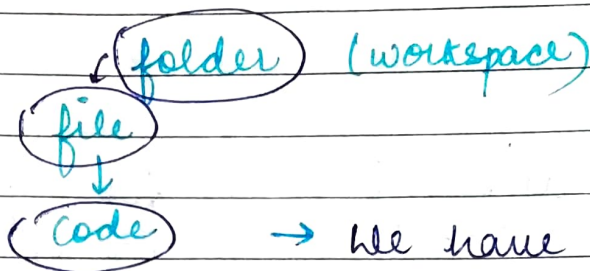 folder (workspace)
file
code → We have